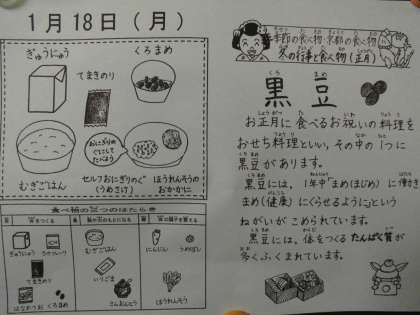 1月18日（月）
ぎゅうにゅう
くろまめ
てまきのり
おにぎりの
ぐにして
たべよう
むぎごはん
セルフおにぎりのぐ
（うめさけ）
ほうれんそうの
おかかに
食べ物の3つのはたらき
ぎゅうにゅう
てまきのり
はなかつお
くろまめ
むぎごはん
いりごま
さんおんとう
にんじん
うめぼし
ほうれんそう
季節の食べ物・京都の食べ物
冬の行事と食べ物（正月）
くろ まめ
黒豆
お正月に食べるお祝いの料理を
おせち料理といい、その中の1つに
黒豆があります。
黒豆には、1年中“まめ（まじめ）に働き
まめ（健康）にくらせるように”という
ねがいがこめられています。
黒豆には、体をつくるたんぱく質が
多くふくまれています。